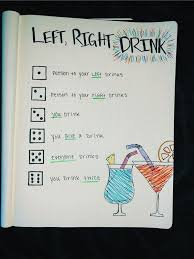 LEFT, RIGHT, DRINK
Person to your left drinks
Person to your right drinks
you drink
you give a drink
everyone drinks
you drink twice